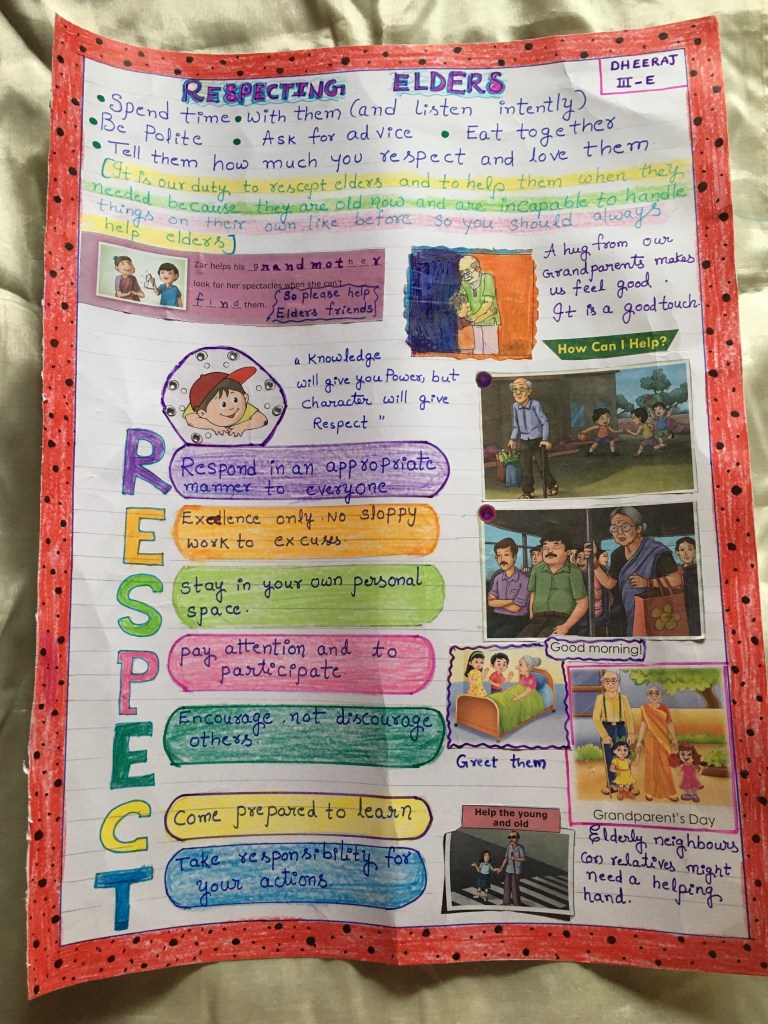 RESPECTING ELDERS
DHEERAJ
III-E
• Spend time • With them (and listen intently)
• Be Polite • Ask for advice • Eat together
• Tell them how much you respect and love them.
[It is our duty to rescept elders and to help them when they
needed because they are old now and are incapable to handle
things on their own like before so you should always
help elders]
Zar helps his grandmother
look for her spectacles when she can't
find them.
(So please help
Elders friends)
A hug from our
Grandparents makes
us feel good.
It is a good touch.
How Can I Help?
" Knowledge
will give you Power, but
Character will give
Respect "
RESPECT
Respond in an appropriate
manner to everyone
Excellence only. No sloppy
work to excuses.
Stay in your own personal
space.
pay attention and to
participate
Encourage, not discourage
others.
Come prepared to learn
Take responsibility for
your actions.
Good morning!
Greet them
Grandparent's Day
Help the young
and old
Elderly neighbours
(or) relatives might
need a helping
hand.